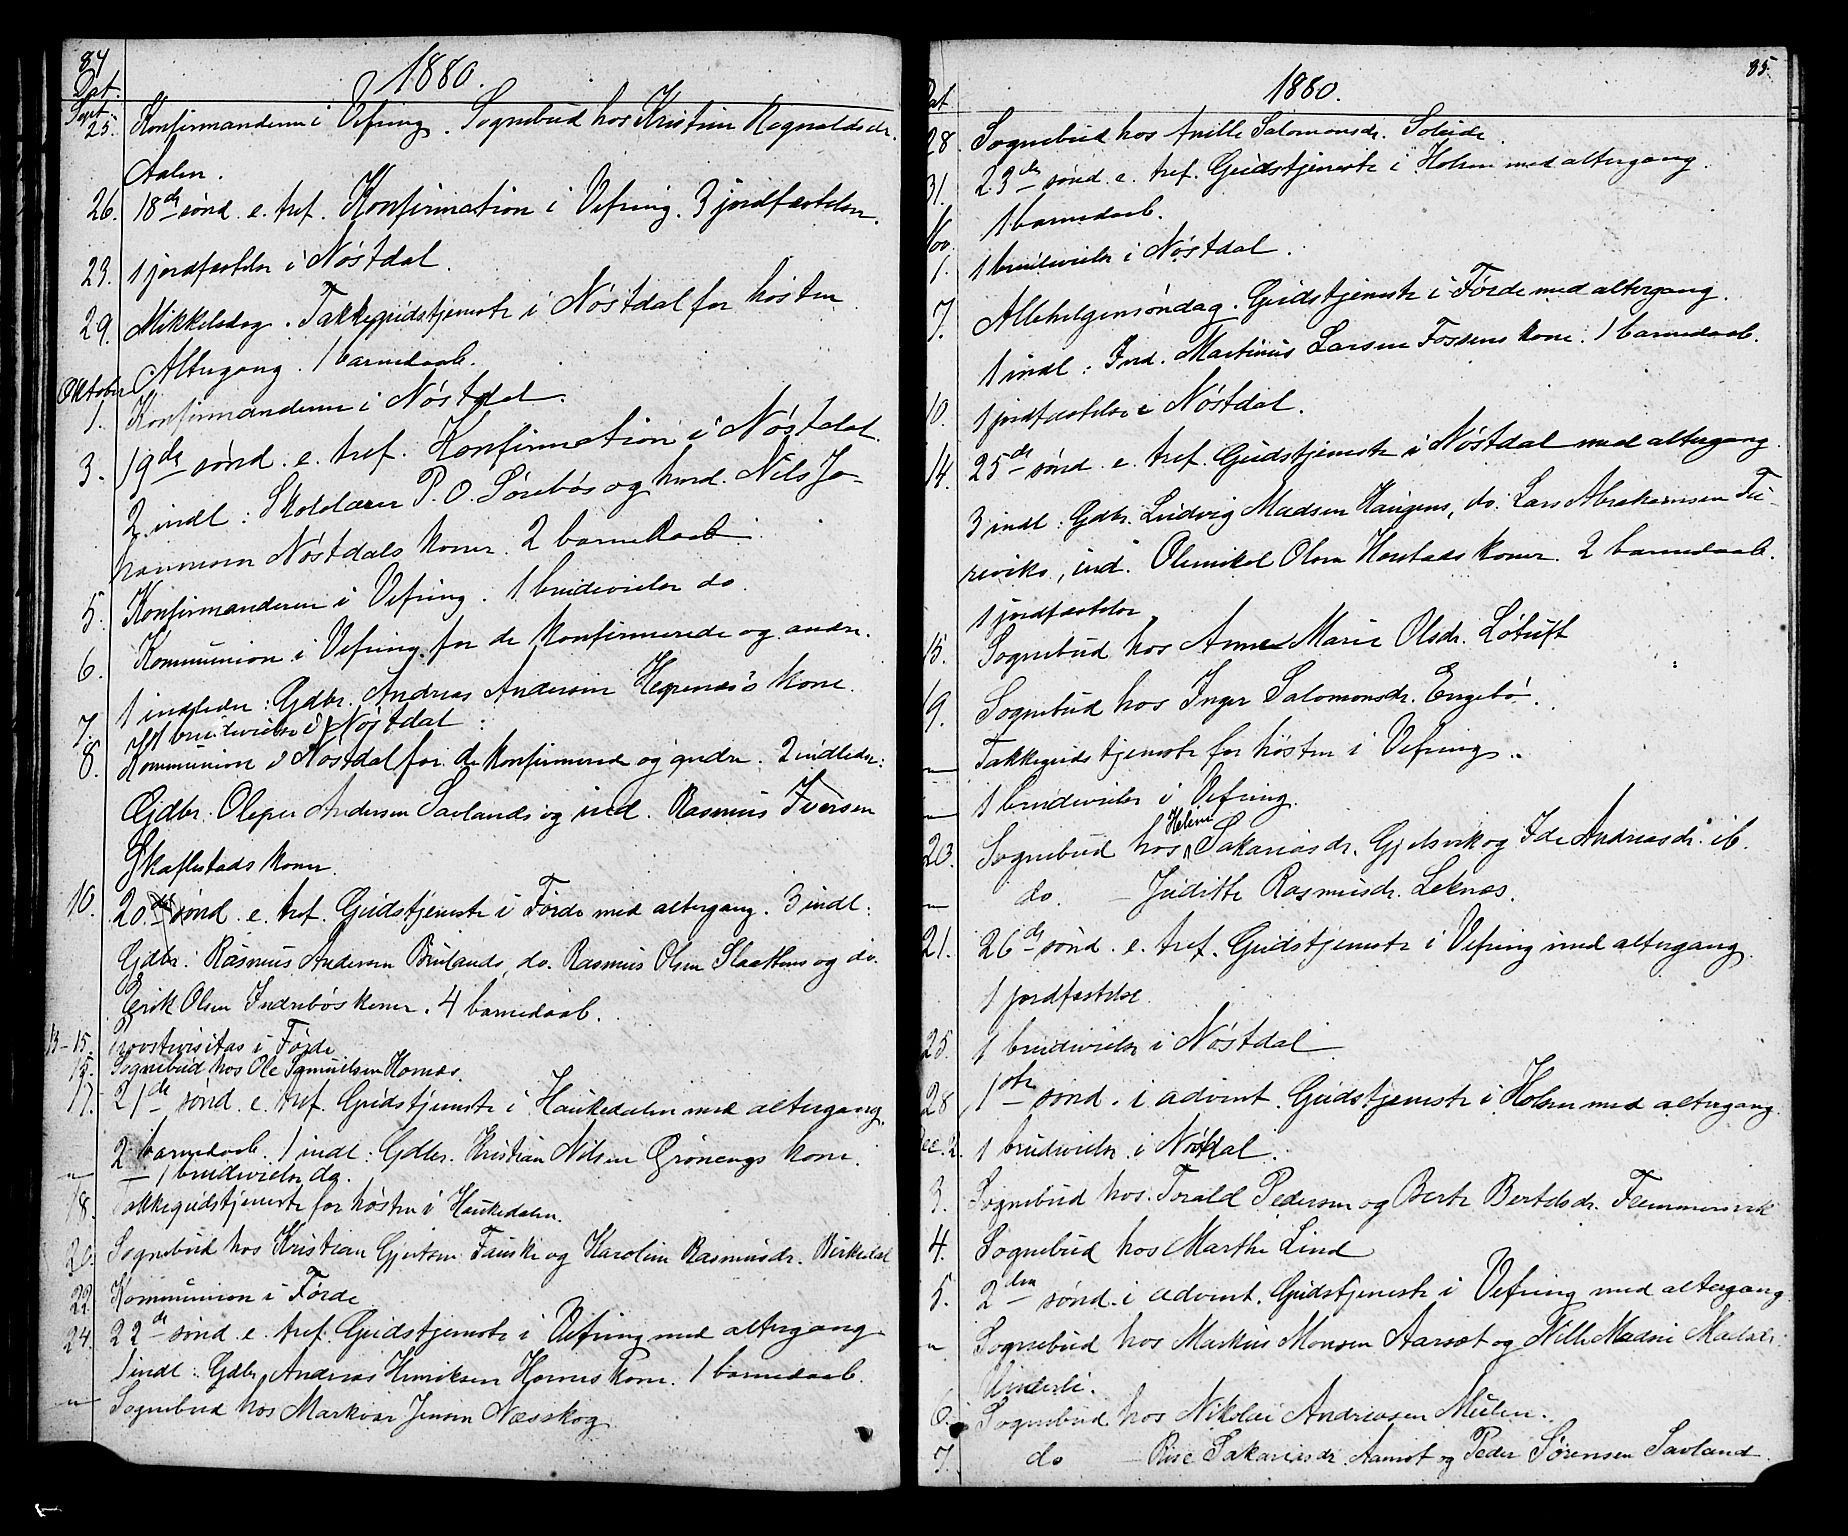 84
1880.
Dat.
Sept. 25. Konfirmanderne i Vefring. Sognebud hos Kristine Ragnvaldsdr.
Aalen.
26. 18de sønd. e. tref. Konfirmation i Vefring. 3 jordfæstelser.
23. 1 jordfæstelse i Nøstdal.
29. Mikkelsdag. Takkegudstjeneste i Nøstdal for høsten
Altergang. 1 barnedaab.
Oktober
1. Konfirmanderne i Nøstdal.
3. 19de sønd. e. tref. Konfirmation i Nøstdal.
2 indl: Skolelærer P. O. Sørebøs og husd. Nils Jo-
hannesen Nøstdals koner. 2 barnedaab.
5. Konfirmanderne i Vefring. 1 brudevielse do.
6. Kommunion i Vefring for de konfirmerede og andre.
1 indleder: Gdbr. Andreas Andersen Hegrenæs's kone.
7. 1 brudevielse i Nøstdal.
8. Kommunion i Nøstdal for de konfirmerede og andre. 2 indleder:
Gdbr. Oleper Andersen Savlands og ind. Rasmus Iversen
Skaflestads koner.
10. 20de sønd. e. tref. Gudstjeneste i Førde med altergang. 3 indl:
Gdbr. Rasmus Andersen Brulands, do. Rasmus Olsen Slaattens og do.
Erik Olsen Indrebøs koner. 4 barnedaab.
13-15. Provstevisitas i Førde
15. Sognebud hos Ole Samuelsen Hornæs.
17. 21de sønd. e. tref. Gudstjeneste i Haukedalen med altergang.
2 barnedaab. 1 indl: Gdbr. Kristian Nilsen Grønengs kone.
" 1 brudevielse do.
18. Takkegudstjeneste for høsten i Haukedalen.
20. Sognebud hos Kristian Gjertsen Fauske og Karoline Rasmusdr. Birkedal
22. Kommunion i Førde
24. 22de sønd. e. tref. Gudstjeneste i Vefring med altergang
1 indl: Gdbr. Andreas Henriksen Hornes kone. 1 barnedaab.
" Sognebud hos Markvar Jensen Næsskog
85
1880.
Dat.
28. Sognebud hos Anille Salomonsdr. Soleide.
31. 23de sønd. e. tref. Gudstjeneste i Holsen med altergang.
1 barnedaab.
Nov.
1. 1 brudevielse i Nøstdal.
7. Allehelgensøndag. Gudstjeneste i Førde med altergang.
1 indl: Ind. Martinus Larsen Fossens kone. 1 barnedaab.
10. 1 jordfæstelse i Nøstdal.
14. 25de sønd. e. tref. Gudstjeneste i Nøstdal med altergang
3 indl: Gdbr. Ludvig Madsen Haugens, do. Lars Abrahamsen Tu-
reviks, ind. Olemikel Olsen Horstads koner. 2 barnedaab.
1 jordfæstelse
15. Sognebud hos Anne Marie Olsdr. Løtuft
19. Sognebud hos Inger Salomonsdr. Engebø.
" Takkegudstjeneste for høsten i Vefring.
" 1 brudevielse i Vefring.
20. Sognebud hos Heline Sakariasdr. Gjelsvik og Ide Andreasdr. ib.
" do. — Juditte Rasmusdr. Leknæs.
21. 26de sønd. e. tref. Gudstjeneste i Vefring med altergang.
1 jordfæstelse
25. 1 brudevielse i Nøstdal
28. 1ste sønd. i advent. Gudstjeneste i Holsen med altergang.
Dec. 2. 1 brudevielse i Nøstdal.
3. Sognebud hos Torald Pedersen og Berte Bertelsdr. Flemmensvik
4. Sognebud hos Marthe Lind
5. 2den sønd. i advent. Gudstjeneste i Vefring med altergang
" Sognebud hos Markus Monsen Aarset og Nille Madsdr.
Underli.
6. Sognebud hos Nikolai Andreasen Mulen.
7. do — Rise Sakariasdr. Aamot og Peder Sørensen Savland